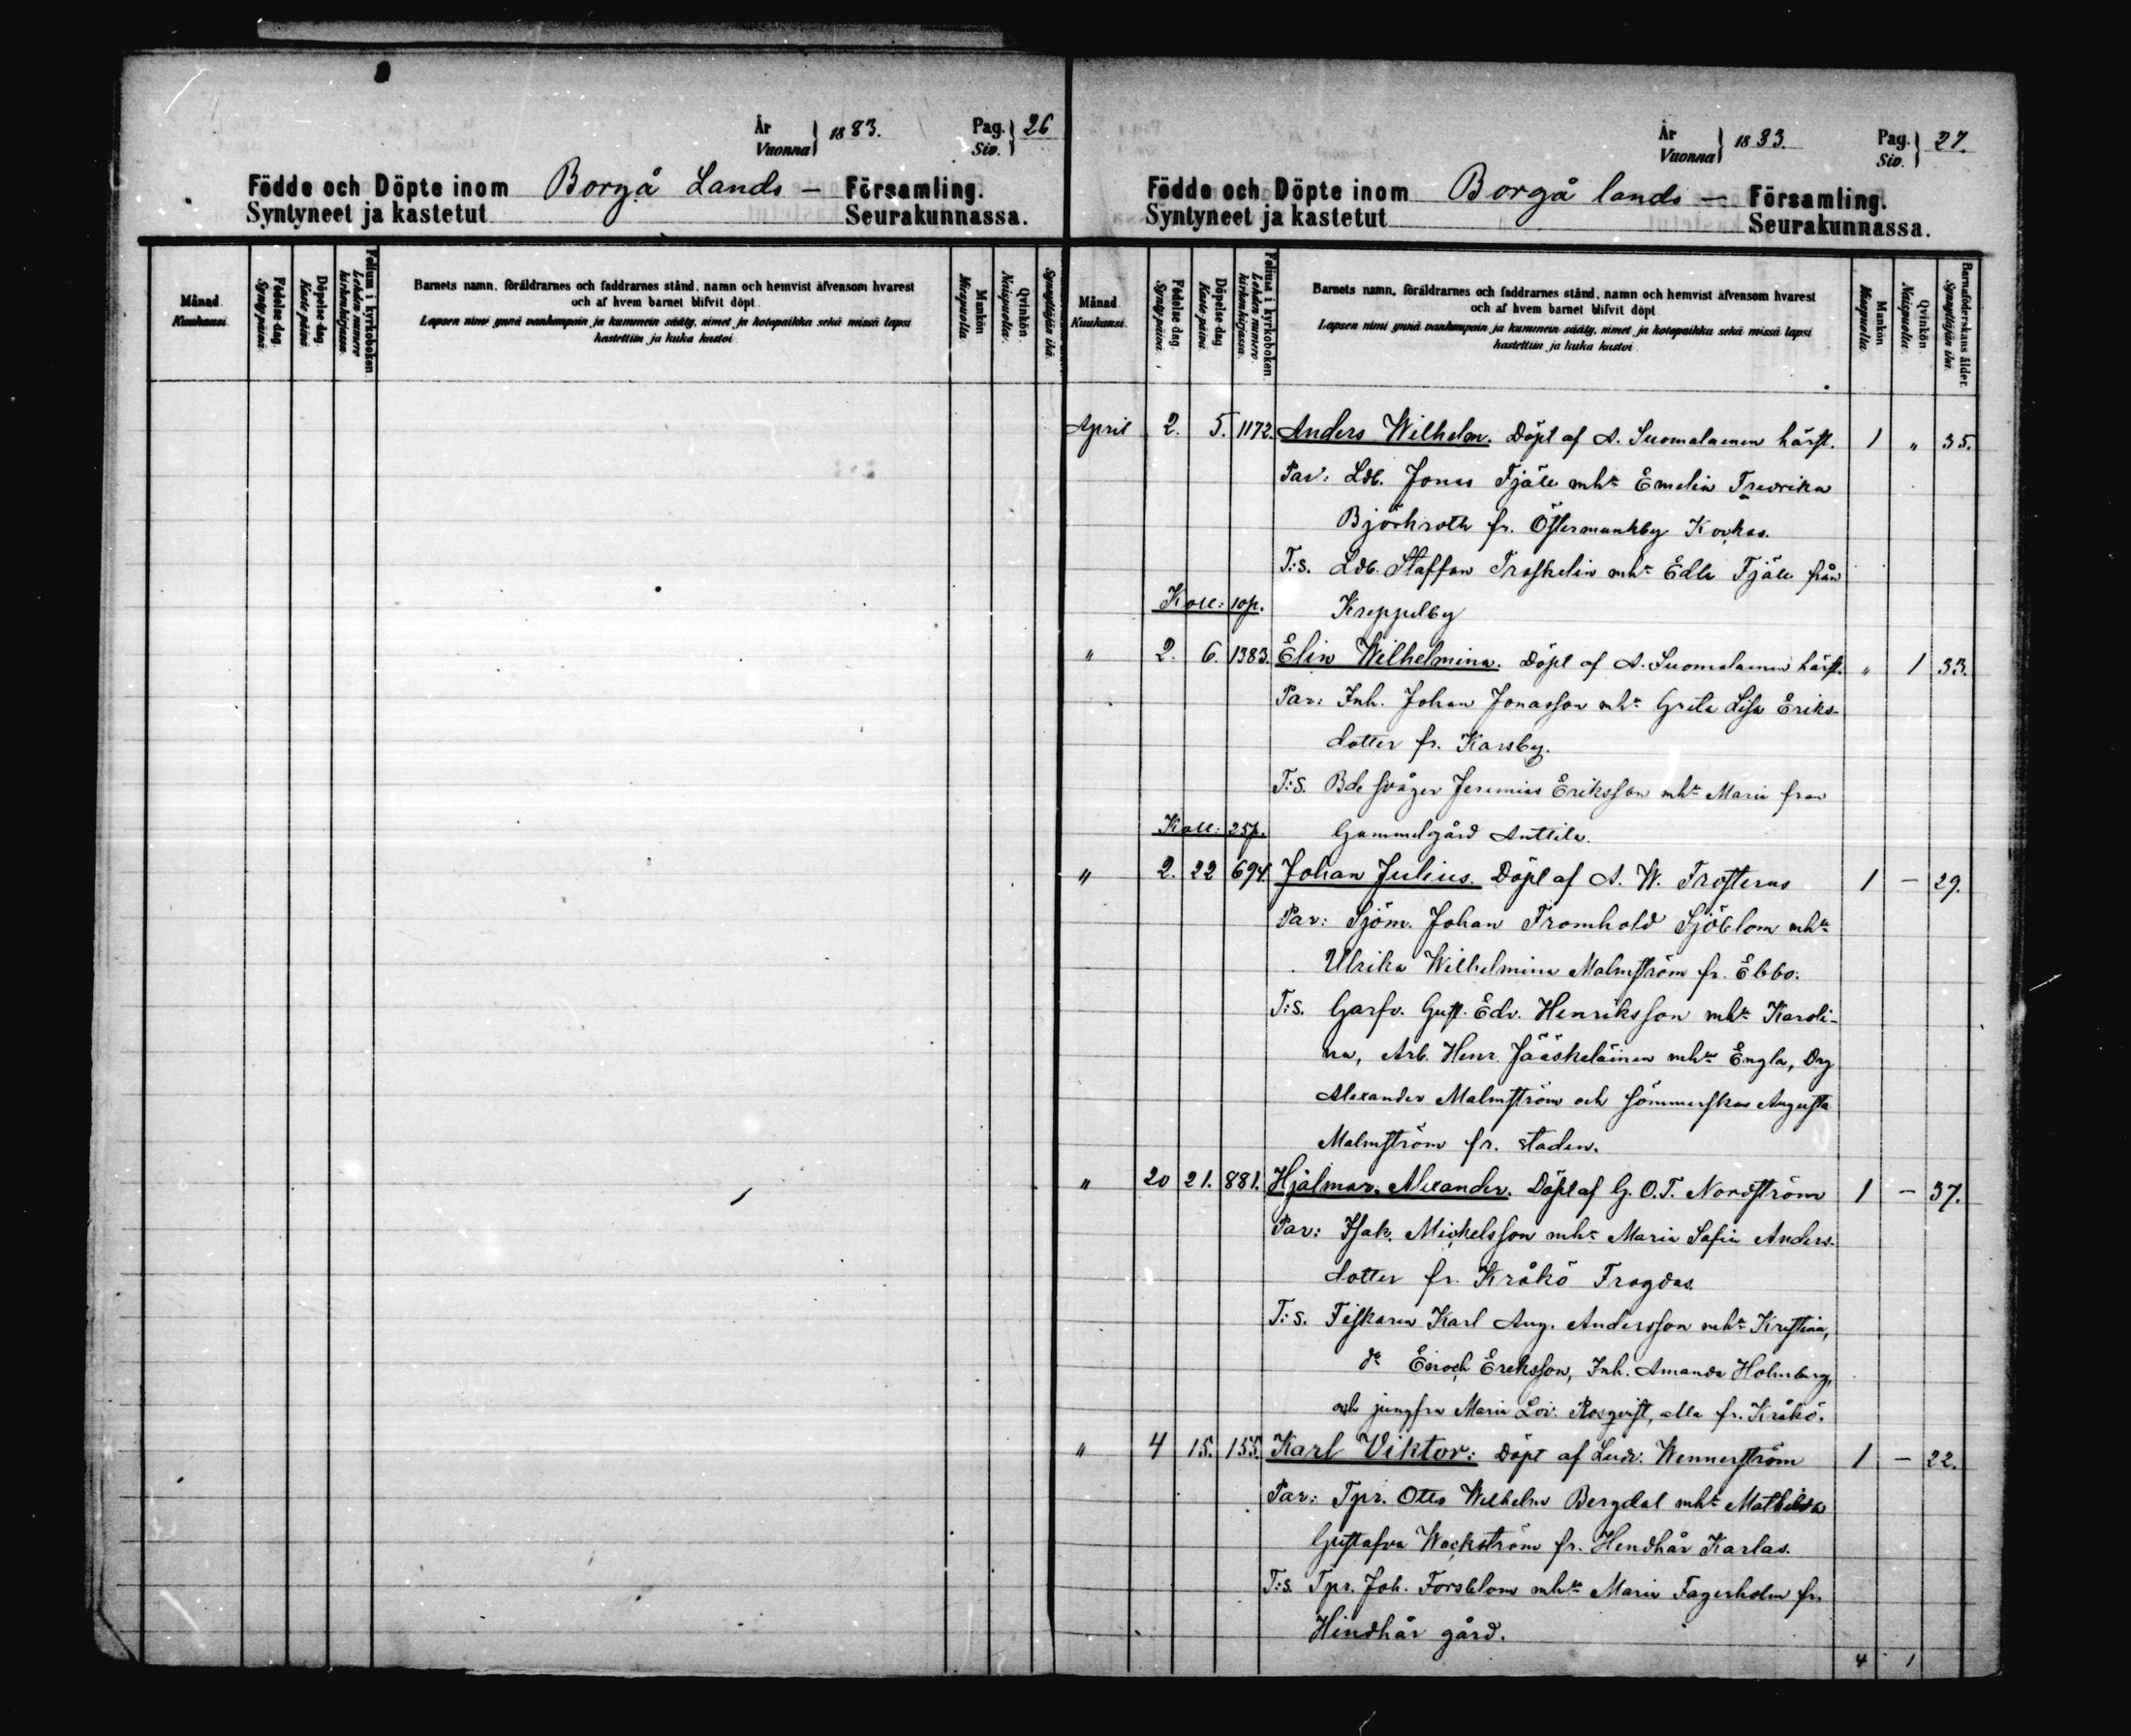 År
Vuonna
1883.
Pag.
Siv.
26
Födde och Döpte inom Borgå Lands – Församling.
Syntyneet ja kastetut Seurakunnassa.
Månad.
Kuukausi.
Födelse-dag.
Synty-päivä.
Döpelse-dag.
Kaste-päivä.
Folium i kyrkoboken
Lehden numero kirkonkirjassa.
Barnets namn, föräldrarnes och faddrarnes stånd, namn och hemvist äfvensom hvarest
och af hvem barnet blifvit döpt.
Lapsen nimi ynnä vanhempain ja kummein sääty, nimet ja kotopaikka sekä missä lapsi
kastettiin ja kuka kastoi.
Mankön
Miespuolia.
Qvinkön.
Naispuolia.
Synnyttäjän ikä.
År
Vuonna
1883.
Pag.
Siv.
27.
Födde och Döpte inom Borgå lands – Församling.
Syntyneet ja kastetut Seurakunnassa.
Månad.
Kuukausi.
Födelse-dag.
Synty-päivä.
Döpelse-dag.
Kaste-päivä.
Folium i kyrkoboken
Lehden numero kirkonkirjassa.
Barnets namn, föräldrarnes och faddrarnes stånd, namn och hemvist äfvensom hvarest
och af hvem barnet blifvit döpt
Lapsen nimi ynnä vanhempain ja kummein sääty, nimet ja kotopaikka sekä missä lapsi
kastettiin ja kuka kastoi.
Mankön
Miespuolia.
Qvinkön.
Naispuolia.
Barnaföderskans ålder.
Synnyttäjän ikä.
April 2. 5. 1172. Anders Wilhelm. Döpt af A. Suomalainen härst. 1 " 35.
Par: Ldb. Jonas Fjäle mhu Emelia Fredrika
Björkroth fr. Östermunkby Korkas.
T:s. Ldb. Staffan Troskelin mhu Edla Fjäle från
Koll: 10p. Kreppelby
" 2. 6. 1383. Elin Wilhelmina. Döpt af A. Suomalainen härst. " 1 33.
Par: Inh. Johan Jonasson mhu Greta Lisa Eriks-
dotter fr. Karsby.
T:s. Bde svåger Jeremias Eriksson mhu Maria från
Koll: 25p. Gammelgård Anttila.
" 2. 22 694. Johan Julius. Döpt af A. W. Frosterus 1 – 29.
Par: Sjöm. Johan Fromhold Sjöblom mhu
Ulrika Wilhelmina Malmström fr. Ebbo.
T:s. Garfv. Gust. Edv. Henriksson mhu Karoli-
na, Arb. Henr. Jääskeläinen mhu Engla, Drg
Alexander Malmström och sömmerskan Augusta
Malmström fr. staden.
" 20 21. 881. Hjalmar Alexander. Döpt af G. O. T. Nordström 1 – 37.
Par: Isak Mickelsson mhu Maria Sofia Anders-
dotter fr. Kråkö Fragdas.
T:s. Fiskaren Karl Aug. Andersson mhu Kristina,
do Enoch Eriksson, Inh. Amanda Holmberg,
och jungfru Maria Lov. Rosqvist, alla fr. Kråkö.
" 4 15. 155. Karl Viktor: Döpt af Ludv. Wennerström 1 – 22.
Par: Tpr. Otto Wilhelm Bergdal mhu Mathilda
Gustafva Wackström fr. Hendhår Karlas.
T:s. Tpr. Joh. Forsblom mhu Maria Fagerholm fr.
Hindhår gård.
4 1